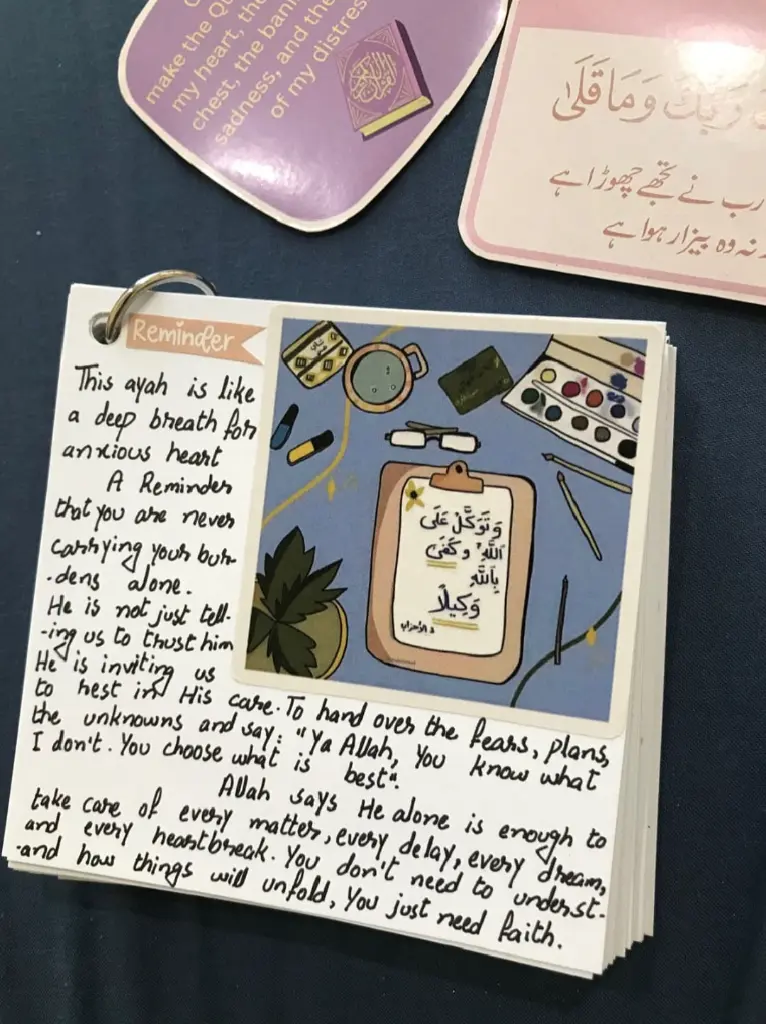 make the Qu
my heart, th
chest, the bani
sadness, and the
of my distres
رَبُّكَ وَمَا قَلَىٰ
رب نے تجھے چھوڑا ہے
نہ وہ بیزار ہوا ہے
Reminder
This ayah is like
a deep breath for
anxious heart
A Reminder
that you are never
carrying your bur-
-dens alone.
He is not just tell-
-ing us to trust him
He is inviting us
to rest in His care. To hand over the fears, plans,
the unknowns and say: "Ya Allah, You know what
I don't. You choose what is best".
Allah says He alone is enough to
take care of every matter, every delay, every dream,
and every heartbreak. You don't need to underst-
-and how things will unfold, You just need faith.
وَتَوَكَّلْ عَلَى
اللَّهِ وَكَفَىٰ
بِاللَّهِ
وَكِيلًا
الأحزاب